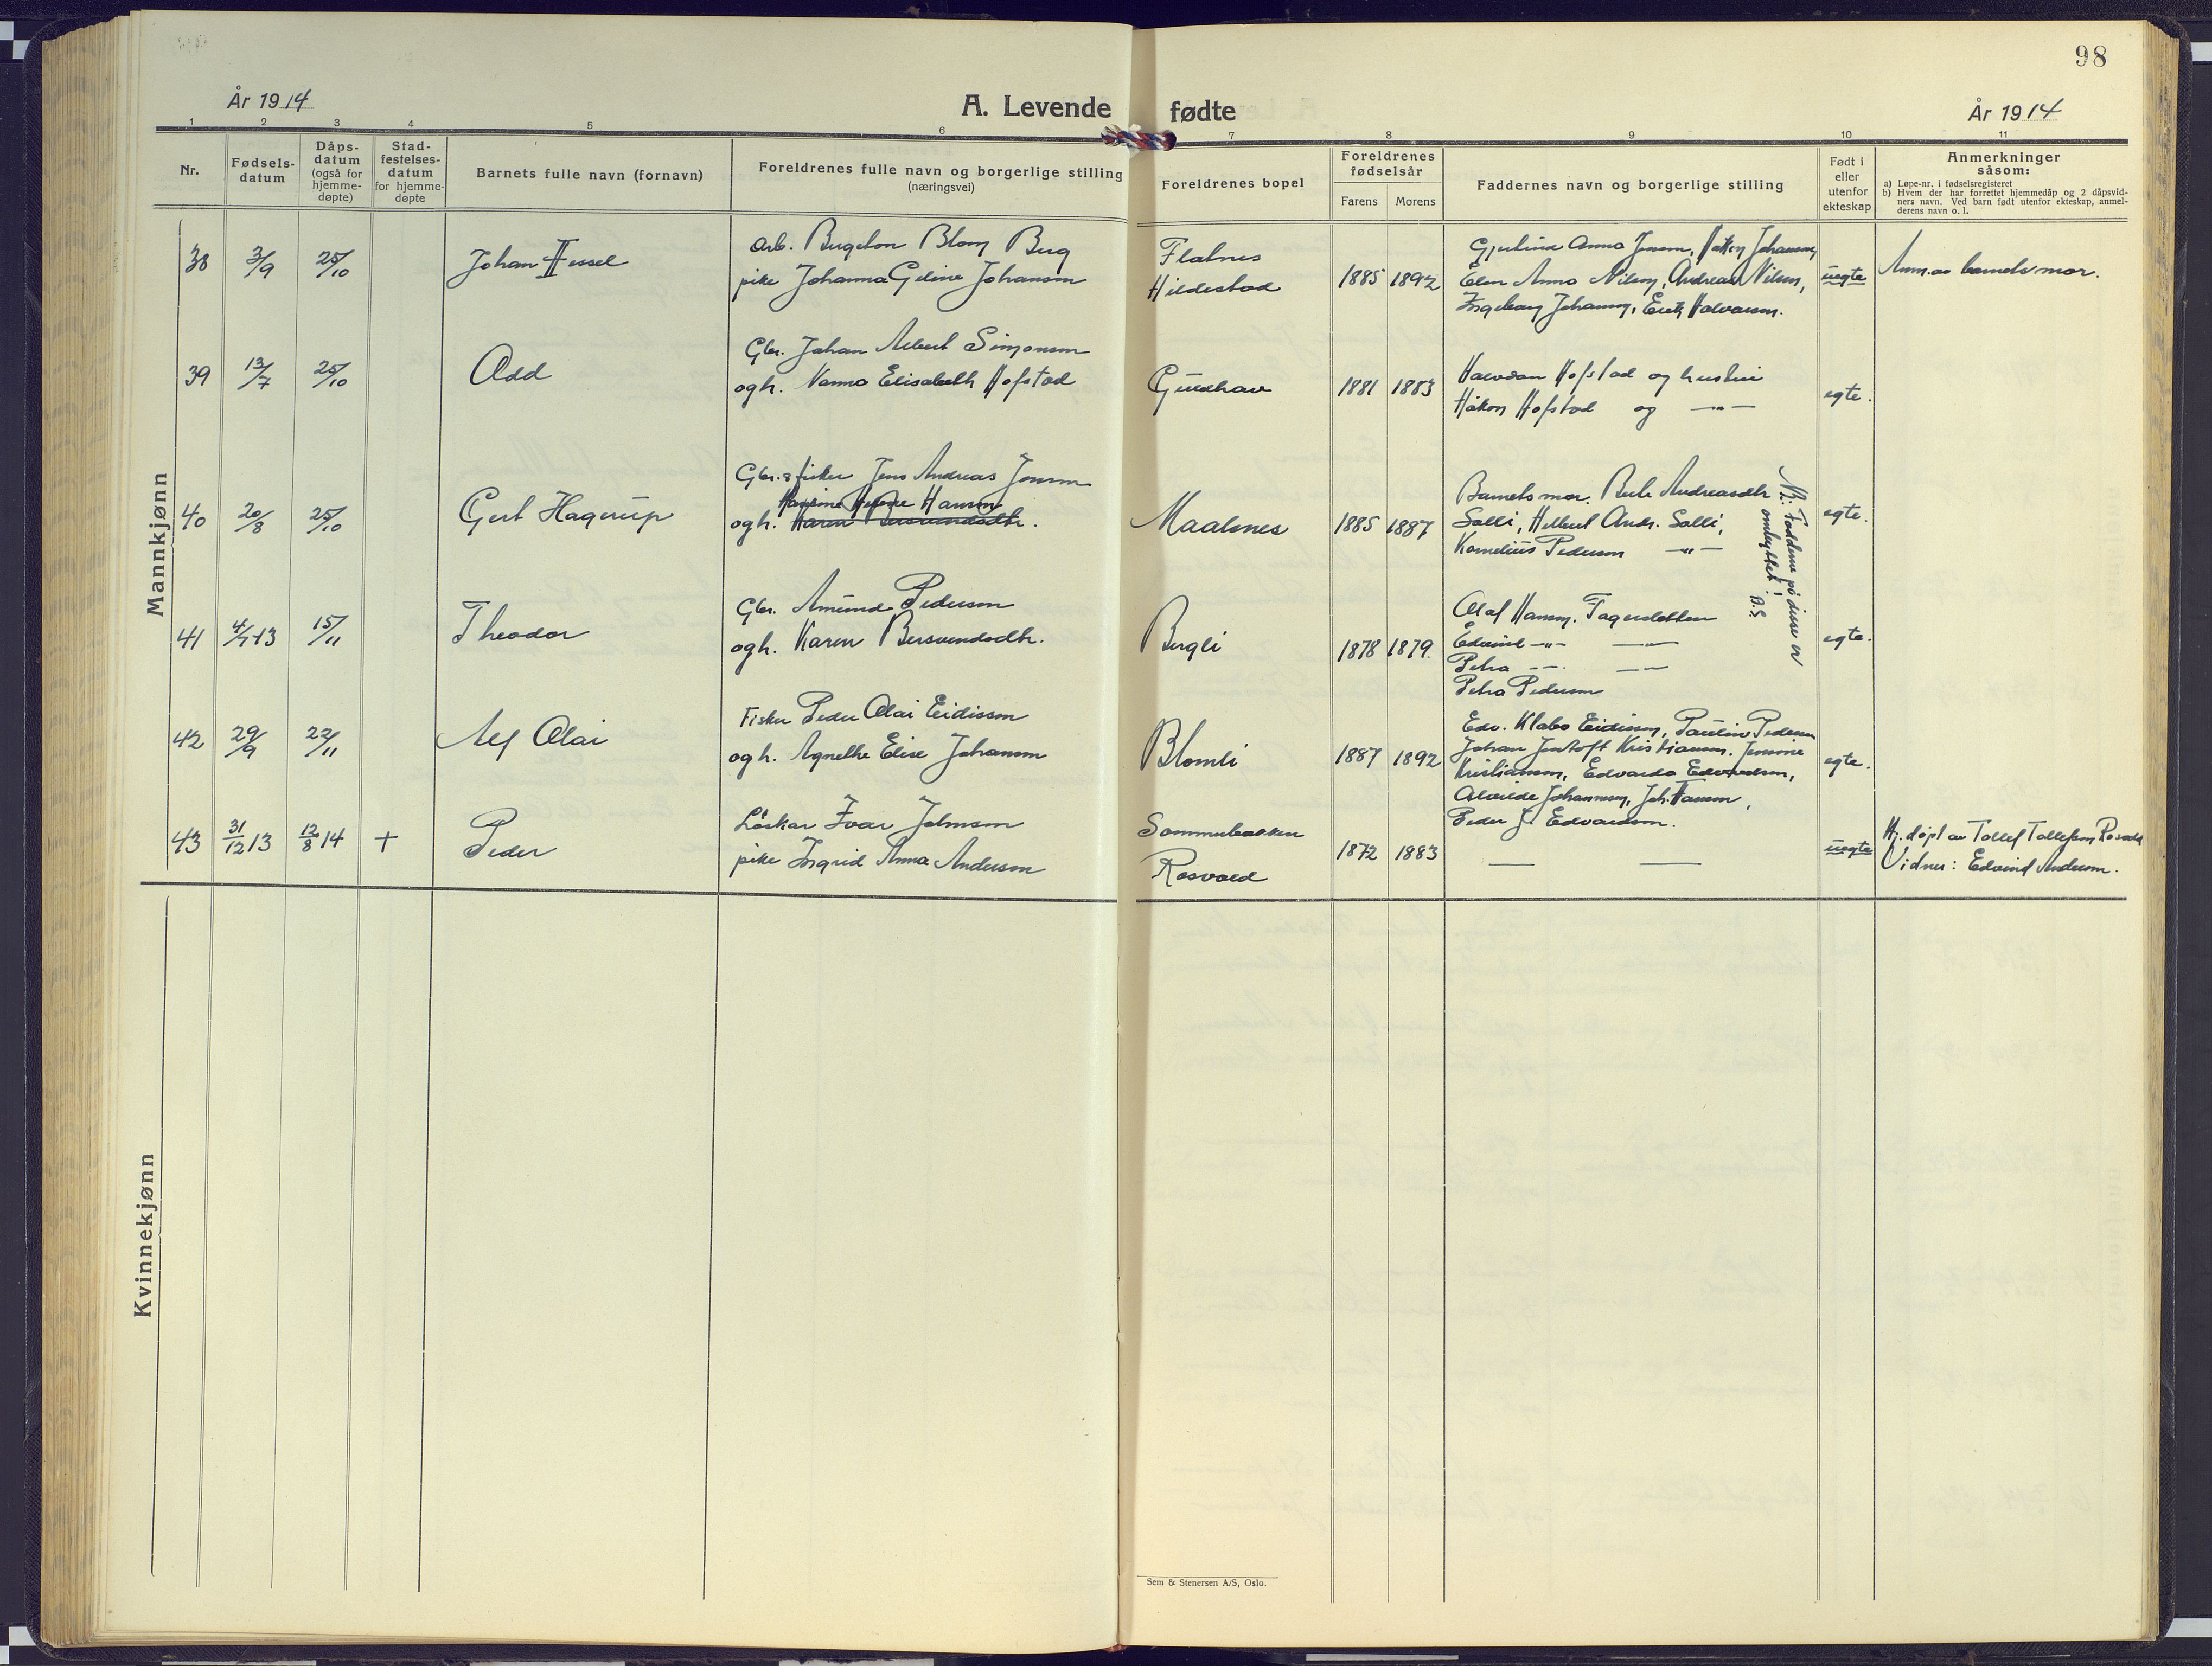 98
År 1914
A. Levende fødte
År 1914
1 2 3 4 5 6 7 8 9 10 11
Nr.
Fødsels-
datum
Dåps-
datum
(også for
hjemme-
døpte)
Stad-
festelses-
datum
for hjemme-
døpte
Barnets fulle navn (fornavn)
Foreldrenes fulle navn og borgerlige stilling
(næringsvei)
Foreldrenes bopel
Foreldrenes
fødselsår
Farens Morens
Faddernes navn og borgerlige stilling
Født i
eller
utenfor
ekteskap
Anmerkninger
såsom:
a) Løpe-nr. i fødselsregisteret
b) Hvem der har forrettet hjemmedåp og 2 dåpsvid-
ners navn. Ved barn født utenfor ekteskap, anmel-
derens navn o. l.
Mannkjønn
38 3/9 25/10 Johan Hessel
Arb. Bergeton Blom Berg
pike Johanna Geline Johansen
Flatnes
Hildestad
1885 1892
Gjertine Anna Jensen, Håkon Johansen,
Elen Anna Nilsen, Andreas Nilsen,
Ingeborg Johansen, Erik Halvorsen.
uegte
Anm. av barnets mor.
39 13/7 25/10 Odd
Gbr. Johan Albert Simonsen
og h. Nanna Elisabeth Hofstad
Guldhav
1881 1883
Halvdan Hofstad og hustru
Håkon Hofstad og —"—
egte.
40 20/8 25/10 Gert Hagerup
Gbr. & fisker Jens Andreas Jensen
Hansine Hansen
og h. Karen Bersvendsdtr.
Maalsnes
1885 1887
Barnets mor. Berte Andreasdtr
Solli, Helbert Andr. Solli,
Kornelius Pedersen —"—
egte.
NB: Fadderne på disse er
ombyttet! B.S
41 4/7 13 15/11 Theodor
Gbr. Amund Pedersen
og h. Karen Bersvendsdtr.
Bergli
1878 1879.
Olaf Hansen. Fagersletten
Edvind —"— —"—
Petra —"— —"—
Petra Pedersen
egte.
42 29/9 22/11 Alf Olai
Fisker Peder Olai Eidissen
og h. Agnethe Elise Johansen
Blomli
1887 1892
Edv. Klabo Eidissen, Pauline Pedersen
Johan Jentoft Kristiansen. Jensine
Kristiansen, Edvarda Edvardsen,
Alvilde Johannesen, Joh. Hansen,
Peder J. Edvardsen.
egte.
43 31/12 13 12/8 14 + Peder
Løskar Ivar Johnsen
pike Ingrid Anna Andersen
Sommerbakken
Rosvold
1872 1883
— —
uegte
Hj. døpt av Tollef Tollefsen Rosvold
Vidner: Edvind Andersen.
Kvinnekjønn
Sem & Stenersen A/S, Oslo.